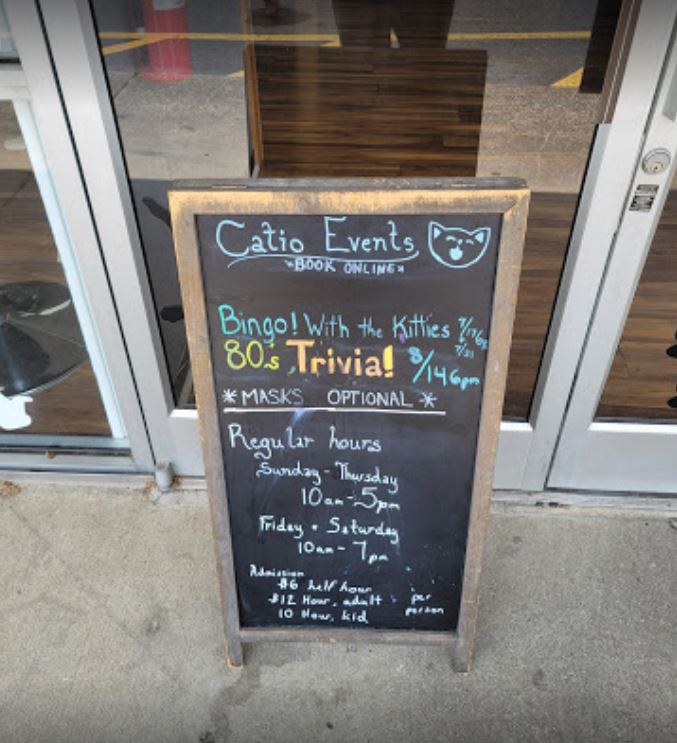 Catio Events
*BOOK ONLINE*
Bingo! With the Kitties 7/17 6p
+ 7/31
80's Trivia! 8/14 6pm
*MASKS OPTIONAL*
Regular hours
Sunday - Thursday
10am - 5pm
Friday + Saturday
10am - 7pm
Admission
$6 half hour
$12 Hour, adult per
10 Hour, kid person